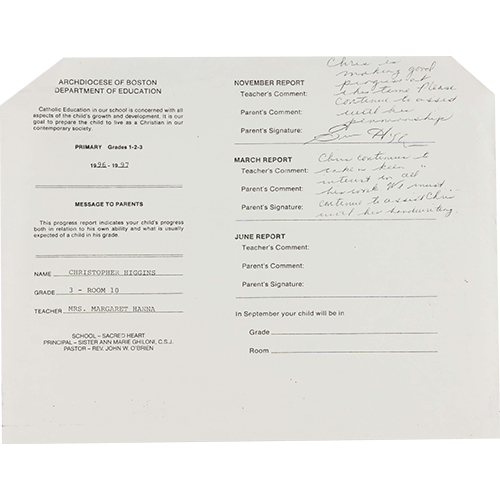 ARCHDIOCESE OF BOSTON
DEPARTMENT OF EDUCATION
Catholic Education in our school is concerned with all
aspects of the child's growth and development. It is our
goal to prepare the child to live as a Christian in our
contemporary society.
PRIMARY Grades 1-2-3
1996-1997
MESSAGE TO PARENTS
This progress report indicates your child's progress
both in relation to his own ability and what is usually
expected of a child in his grade.
NAME CHRISTOPHER HIGGINS
GRADE 3 - ROOM 10
TEACHER MRS. MARGARET HANNA
SCHOOL – SACRED HEART
PRINCIPAL – SISTER ANN MARIE GHILONI, C.S.J.
PASTOR – REV. JOHN W. O'BRIEN
Chris is
making good
NOVEMBER REPORT progress at
Teacher's Comment: this time. Please
Parent's Comment: continue to assist
with his
penmanship
Parent's Signature:
MARCH REPORT Chris continues to
Teacher's Comment: take a keen
interest in all
Parent's Comment: his work. We must
Parent's Signature: continue to assist Chris
with his handwriting.
JUNE REPORT
Teacher's Comment:
Parent's Comment:
Parent's Signature:
In September your child will be in
Grade
Room